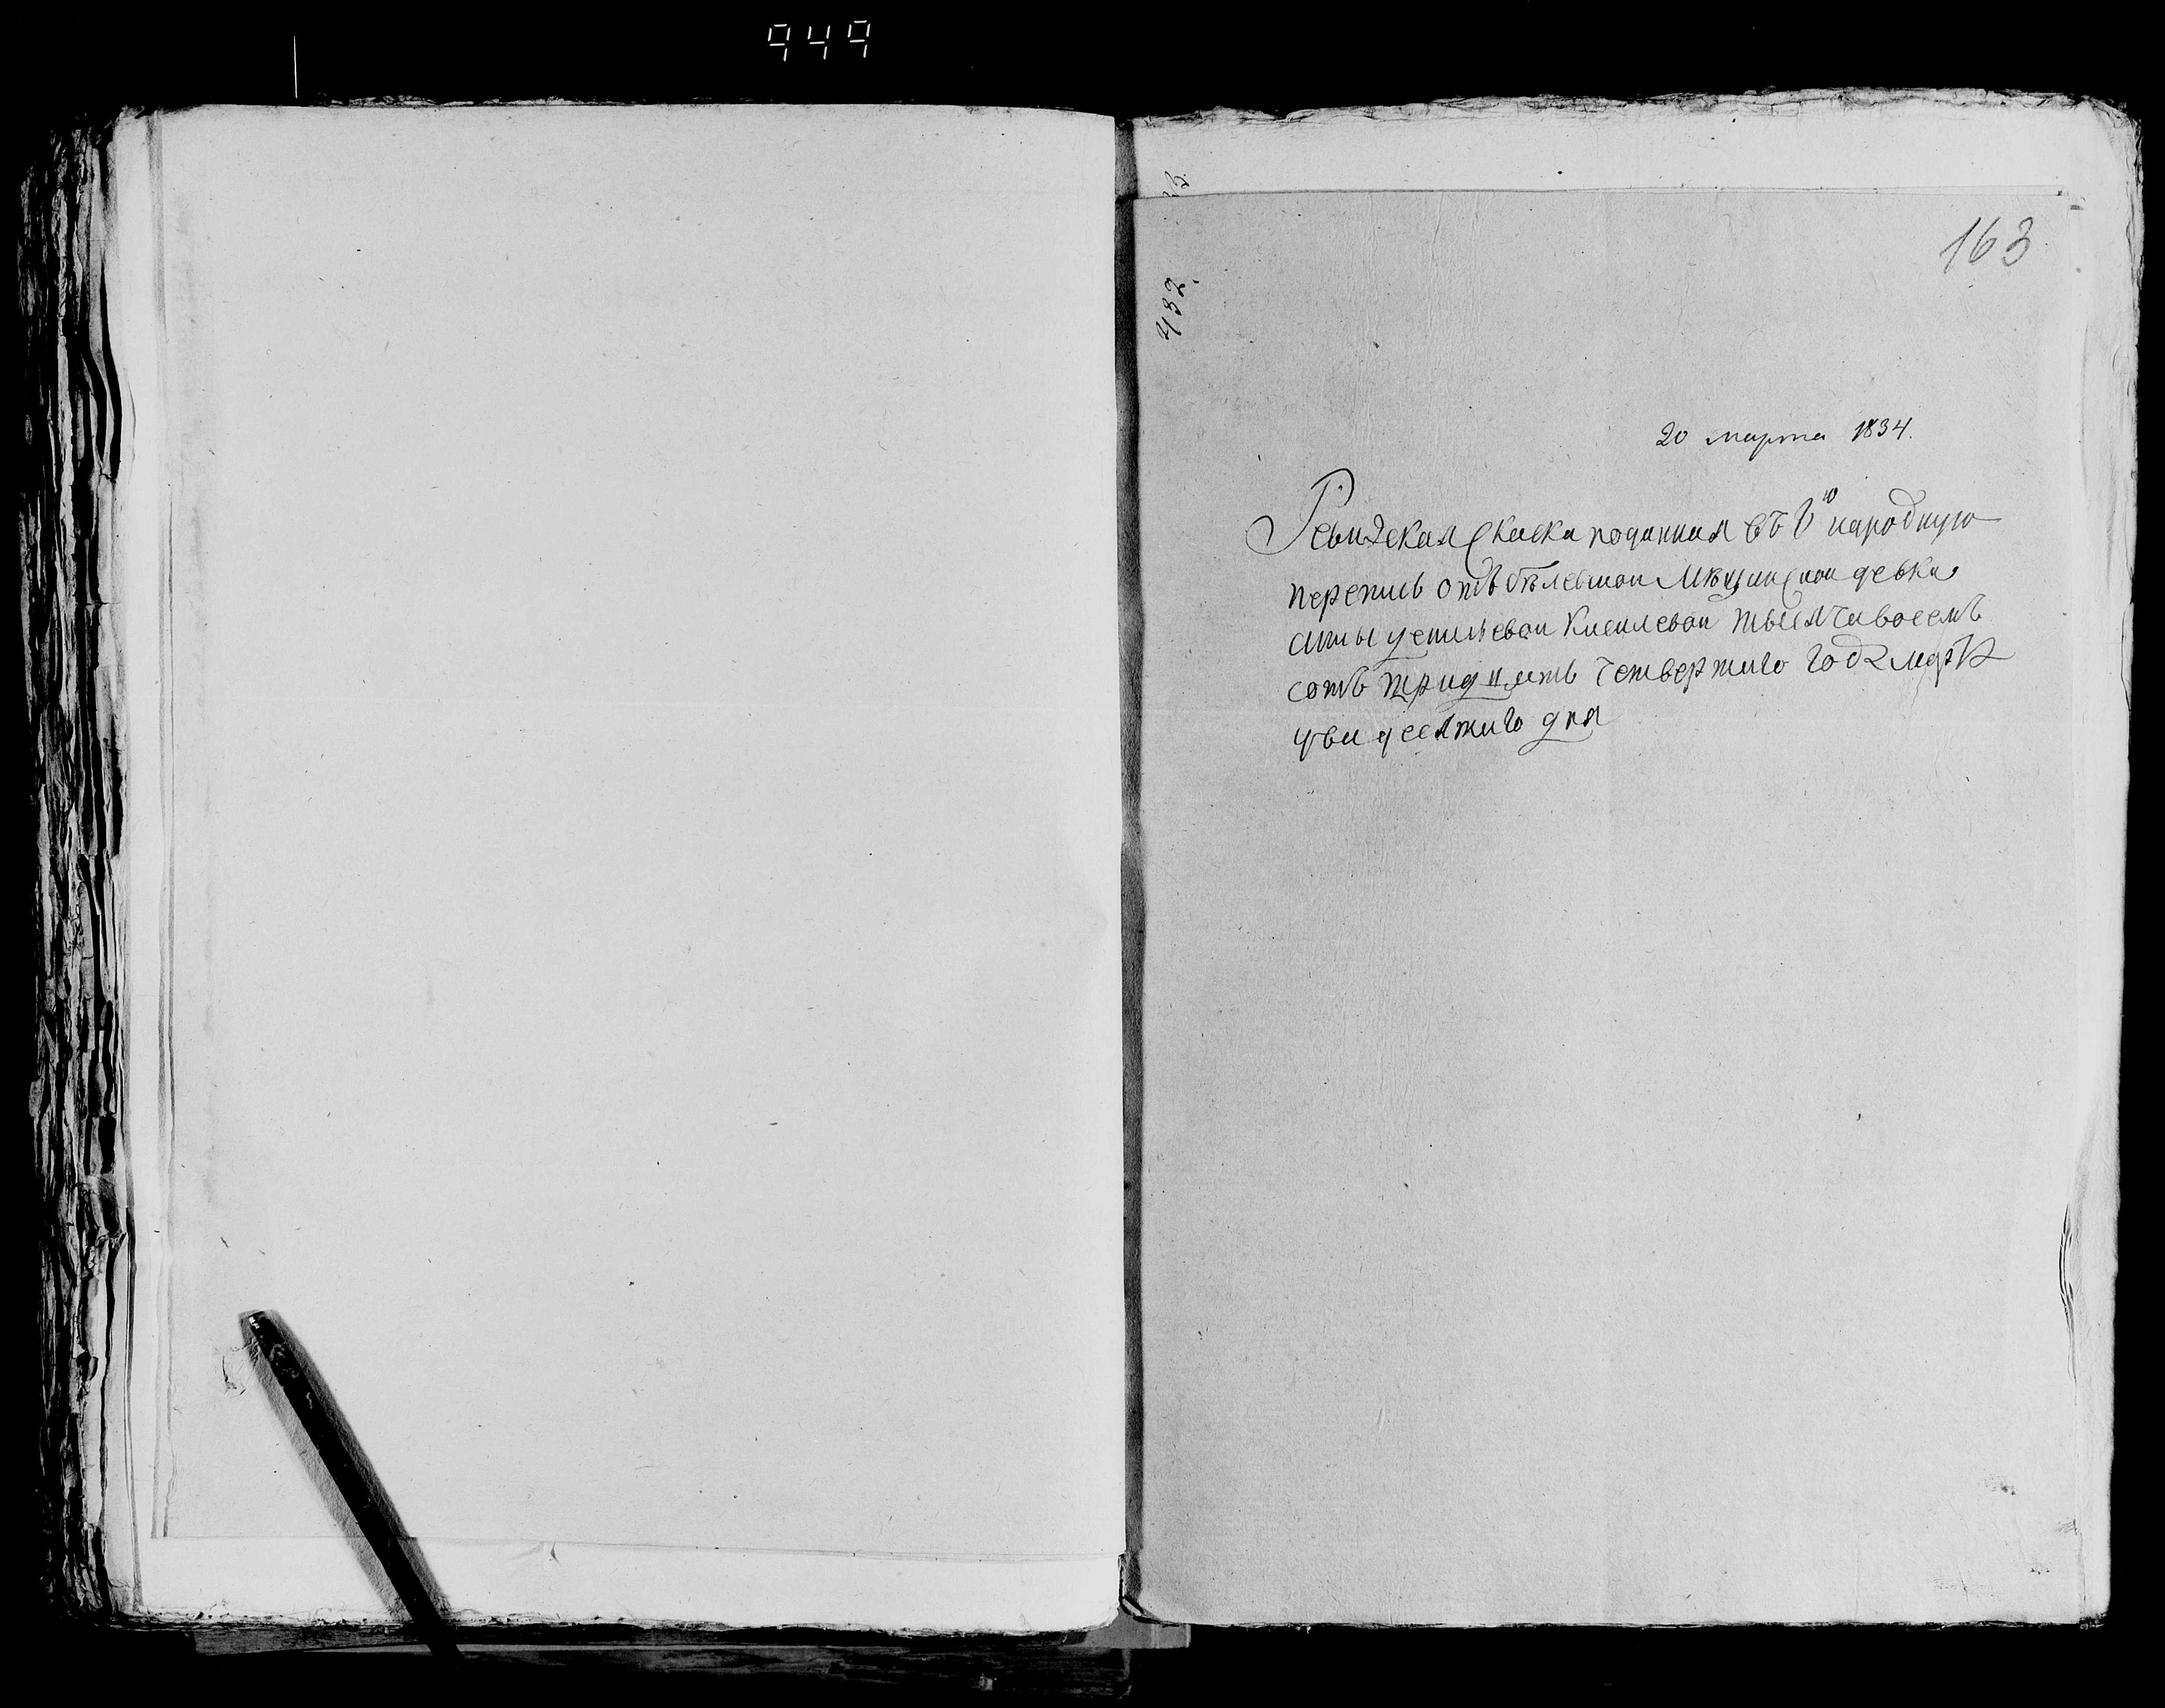 949
163
432.
20 марта 1834.
Ревизская скаска поданная въ 8ю народную
перепись отъ белевшои мещинской девки
анны устиневои Киселевой тысяча восемь
сотъ тридцать четвертаго года марта
двадесятаго дня